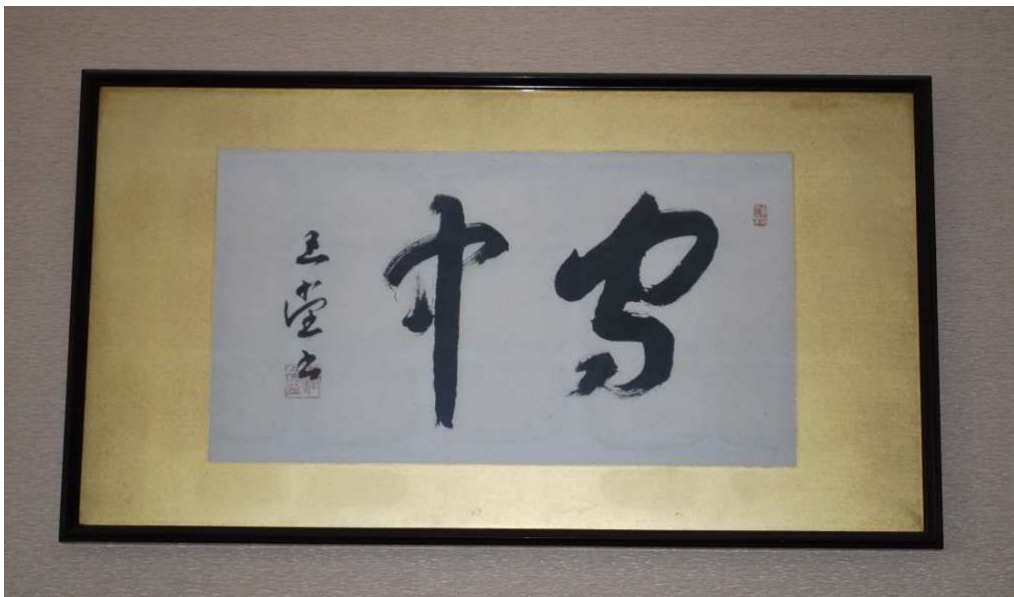 雪中
玉堂書